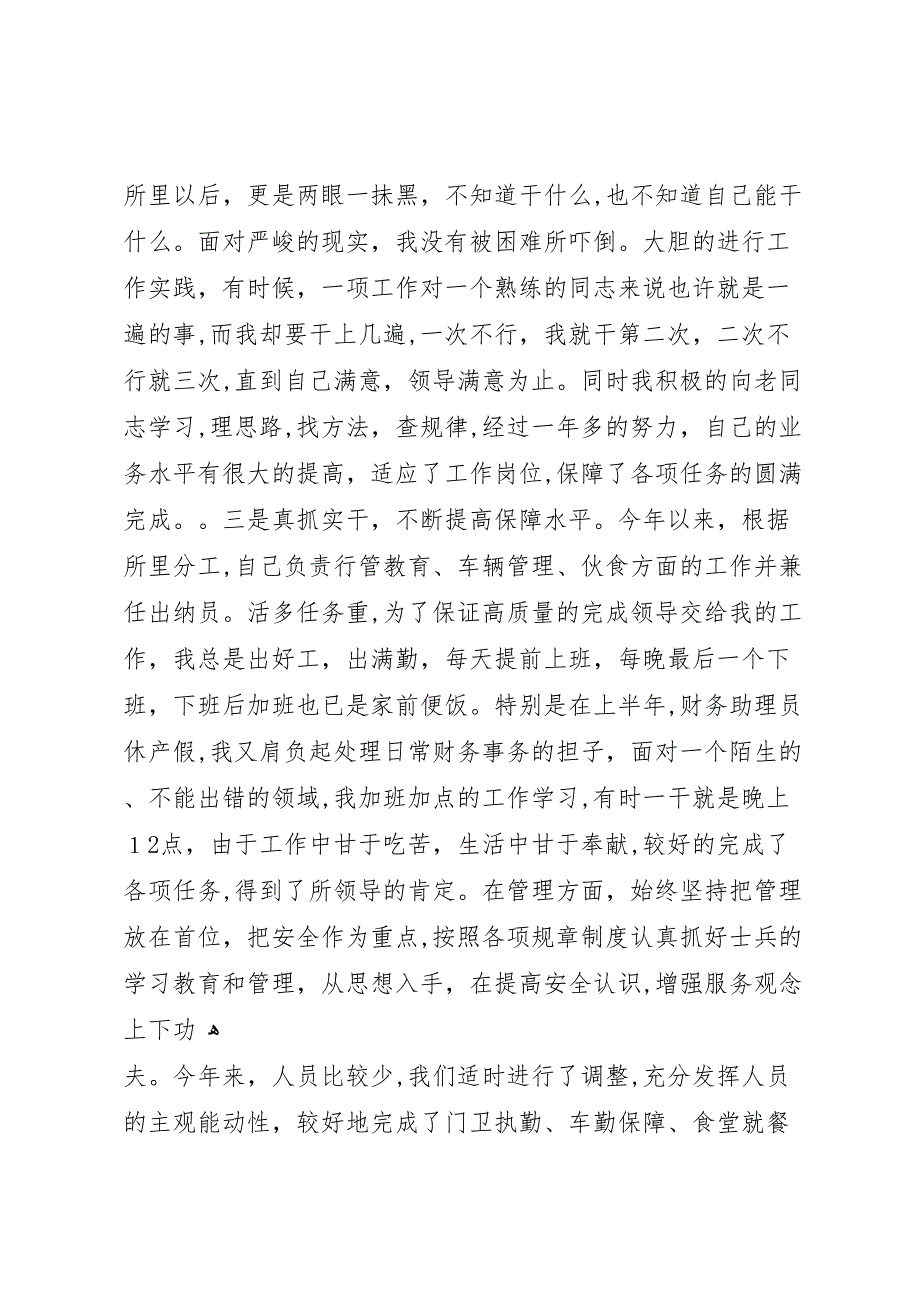 所里以后，更是两眼一抹黑，不知道干什么,也不知道自己能干
什么。面对严峻的现实，我没有被困难所吓倒。大胆的进行工
作实践，有时候，一项工作对一个熟练的同志来说也许就是一
遍的事,而我却要干上几遍,一次不行，我就干第二次，二次不
行就三次,直到自己满意，领导满意为止。同时我积极的向老同
志学习,理思路,找方法，查规律,经过一年多的努力，自己的业
务水平有很大的提高，适应了工作岗位,保障了各项任务的圆满
完成。。三是真抓实干，不断提高保障水平。今年以来，根据
所里分工,自己负责行管教育、车辆管理、伙食方面的工作并兼
任出纳员。活多任务重,为了保证高质量的完成领导交给我的工
作，我总是出好工，出满勤，每天提前上班，每晚最后一个下
班，下班后加班也已是家前便饭。特别是在上半年,财务助理员
休产假,我又肩负起处理日常财务事务的担子，面对一个陌生的
、不能出错的领域,我加班加点的工作学习,有时一干就是晚上
12点，由于工作中甘于吃苦，生活中甘于奉献,较好的完成了
各项任务,得到了所领导的肯定。在管理方面，始终坚持把管理
放在首位，把安全作为重点,按照各项规章制度认真抓好士兵的
学习教育和管理，从思想入手，在提高安全认识,增强服务观念
上下功 ﻫ
夫。今年来，人员比较少,我们适时进行了调整,充分发挥人员
的主观能动性，较好地完成了门卫执勤、车勤保障、食堂就餐